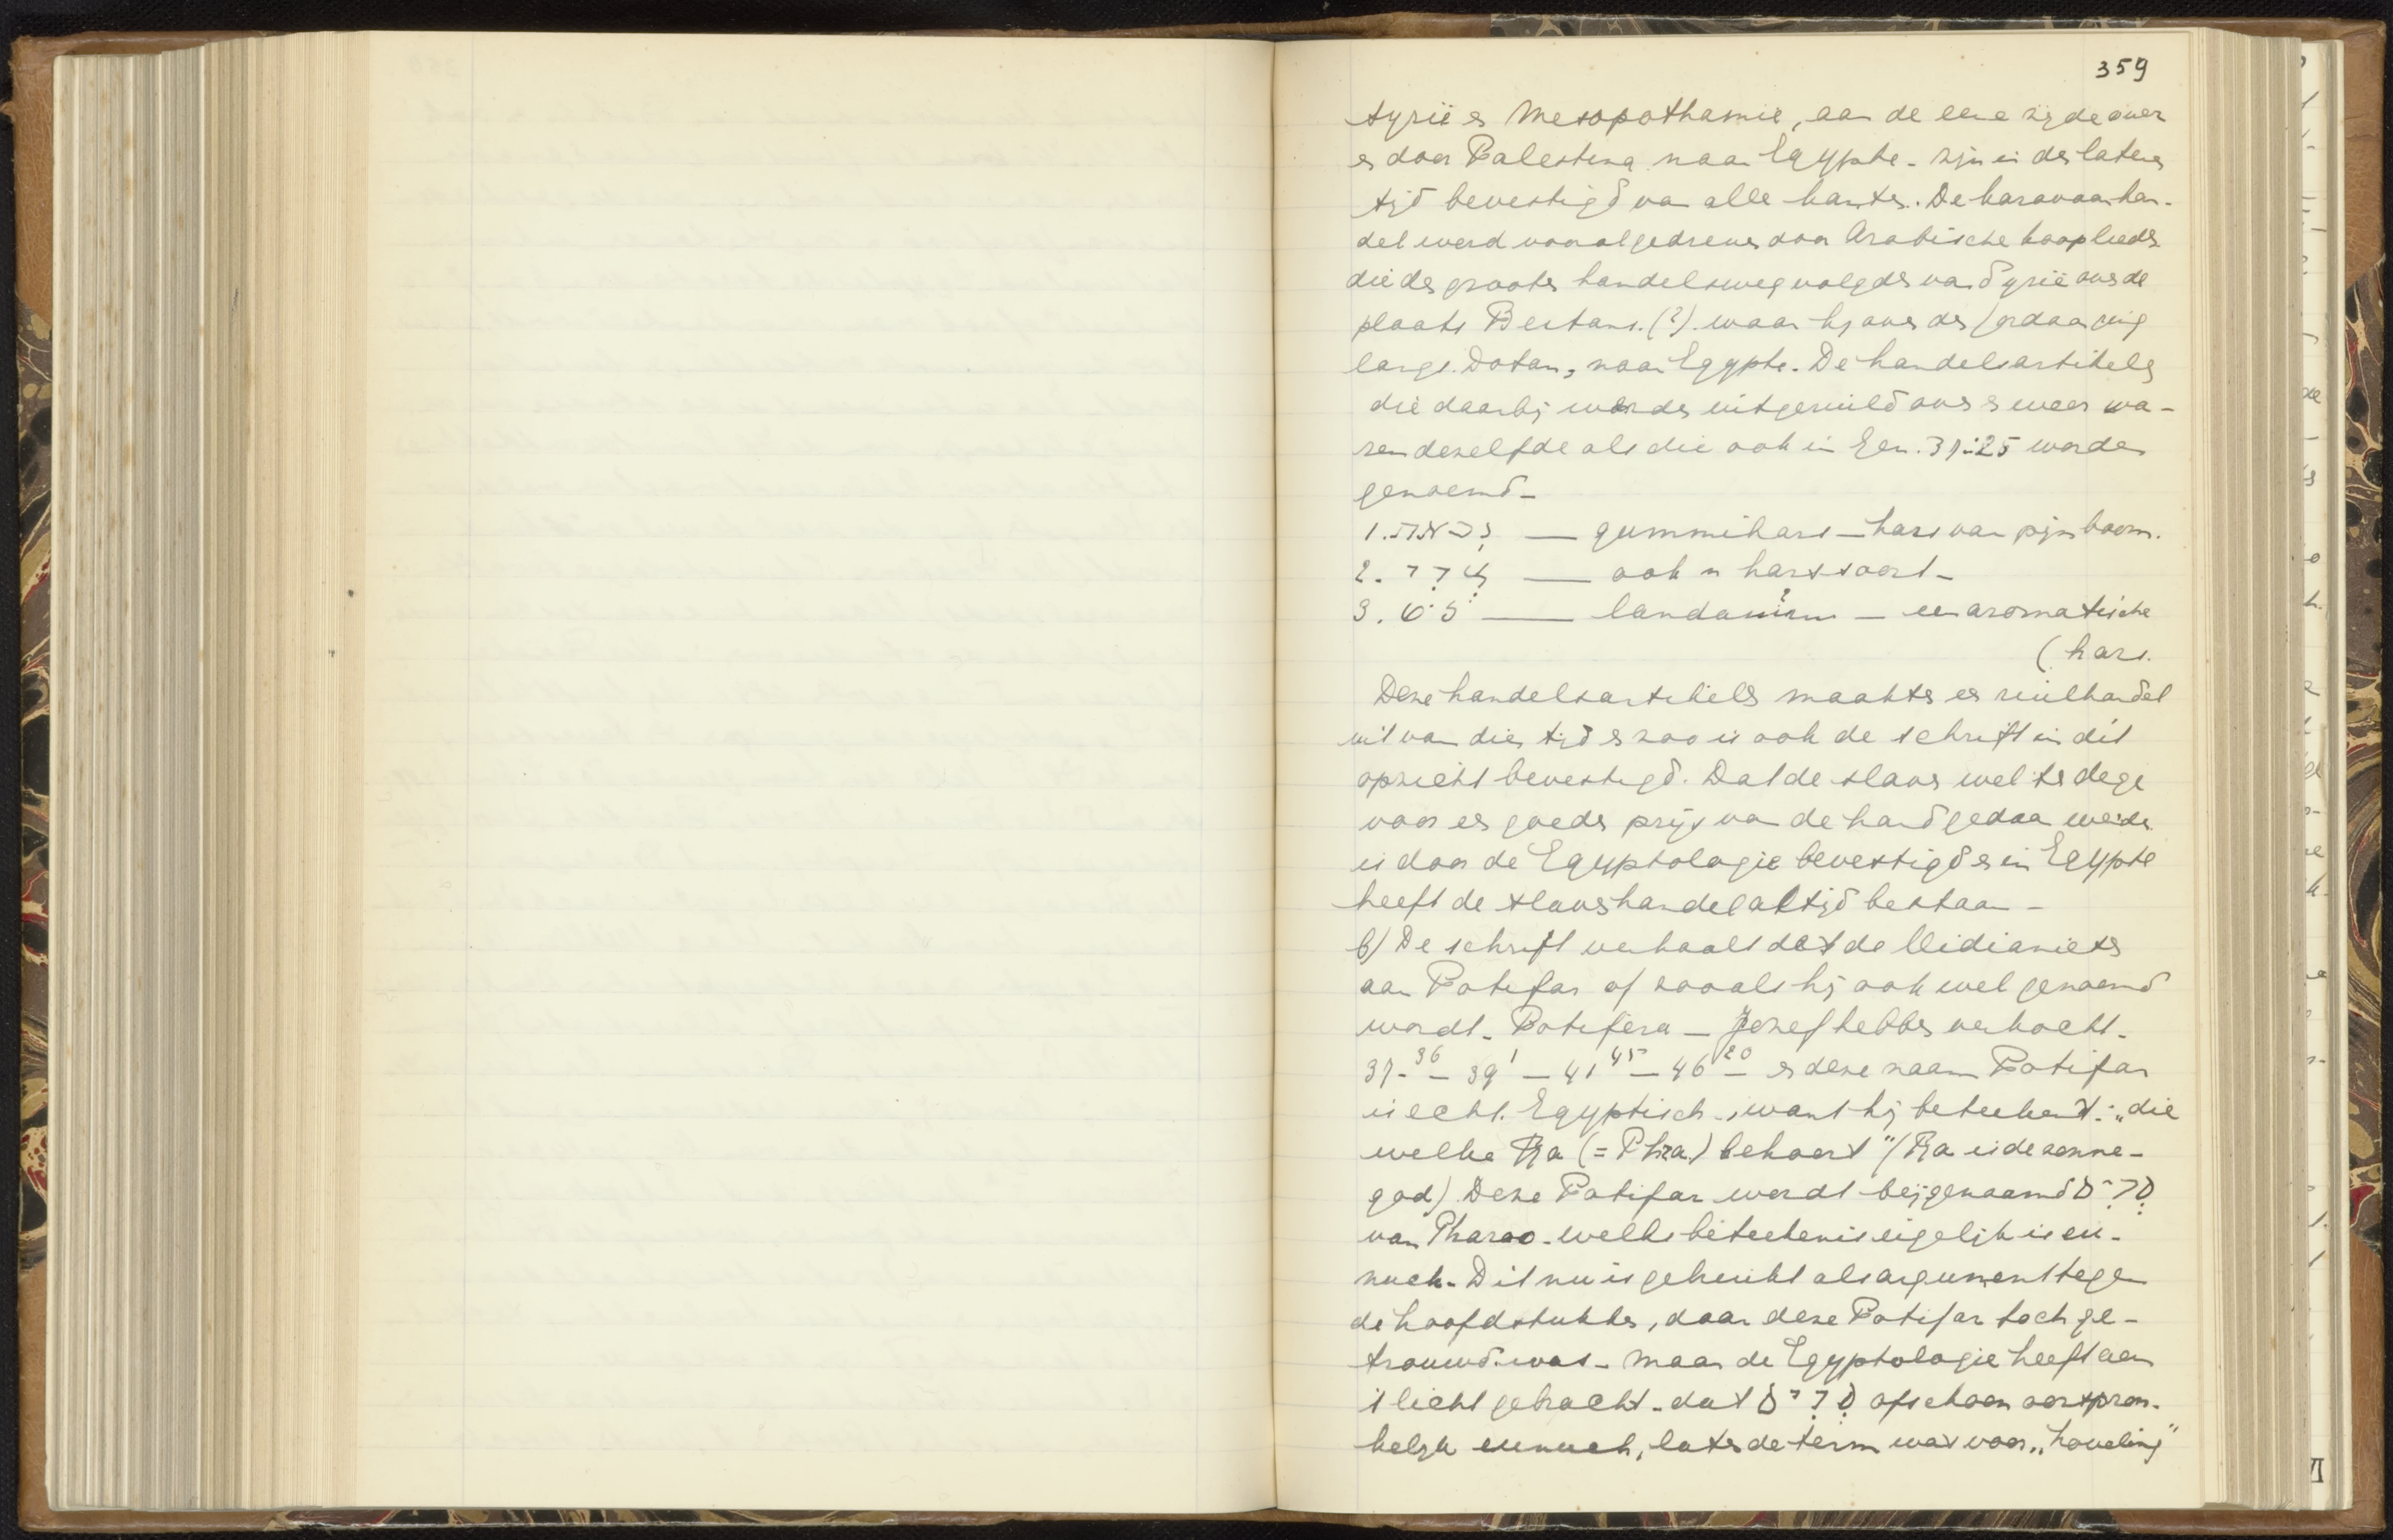 359
syrië en Mesopothamië, aan de eene zijde over
en door Palestina naar Egypte - zijn in den lateren
tijd bevestigd van alle kanten. De karavaanhan-
del werd vooral gedreven door Arabische kooplieden
die den grooten handelsweg volgden van Syrië over de
plaats Beitans. (?) waar hij over den Jordaan ging
langs Dotan, naar Egypte. De handelsartikels
die daarbij werden uitgeruild over en weer wa-
ren dezelfde als die ook in Gen. 37:25 worden
genoemd -
1. נְכֹאת — gummihars - hars van pijnboom.
2. צֳרִי — ook 'n harssoort -
3. לֹט — landanum ? - een aromatische
( hars.
Deze handelsartikels maakten en ruilhandel
uit van dien tijd en zoo is ook de schrift in dit
opzicht bevestigd. Dat de slaven wel te dege
voor een goeden prijs van de hand gedaan werden
is door de Egyptologie bevestigd en in Egypte
heeft de slavenhandel altijd bestaan -
b) De schrift verhaalt dat de Midianieten
aan Potifar of zooals hij ook wel genoemd
wordt - Potifera - Jozef hebben verkocht -
37-36 - 39 1 - 41 45 - 46 20 - en deze naam Potifar
is echt Egyptisch -, want hij beteekent: „die
welke Ra (= Phra) behoort" (Ra is de zonne-
god). Deze Potifar wordt bijgenaamd סָרִיס
van Pharao - welks beteekenis eigelijk is eu-
nuch. Dit nu is gebruikt als argument tegen
de hoofdstukken, daar deze Potifar toch ge-
trouwd was - maar de Egyptologie heeft aan
't licht gebracht - dat סָרִיס ofschoon oorspron-
kelijk eunuch, later de term was voor „hoveling"
VI